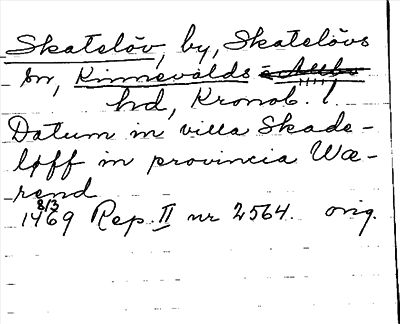 Skatelöv, by, Skatelövs
sn, Kinnevalds
hd, Kronob. l.
Datum in villa Skade-
löff in provincia Wæ-
rend
8/3
1469 Rep. II nr 2564. orig.